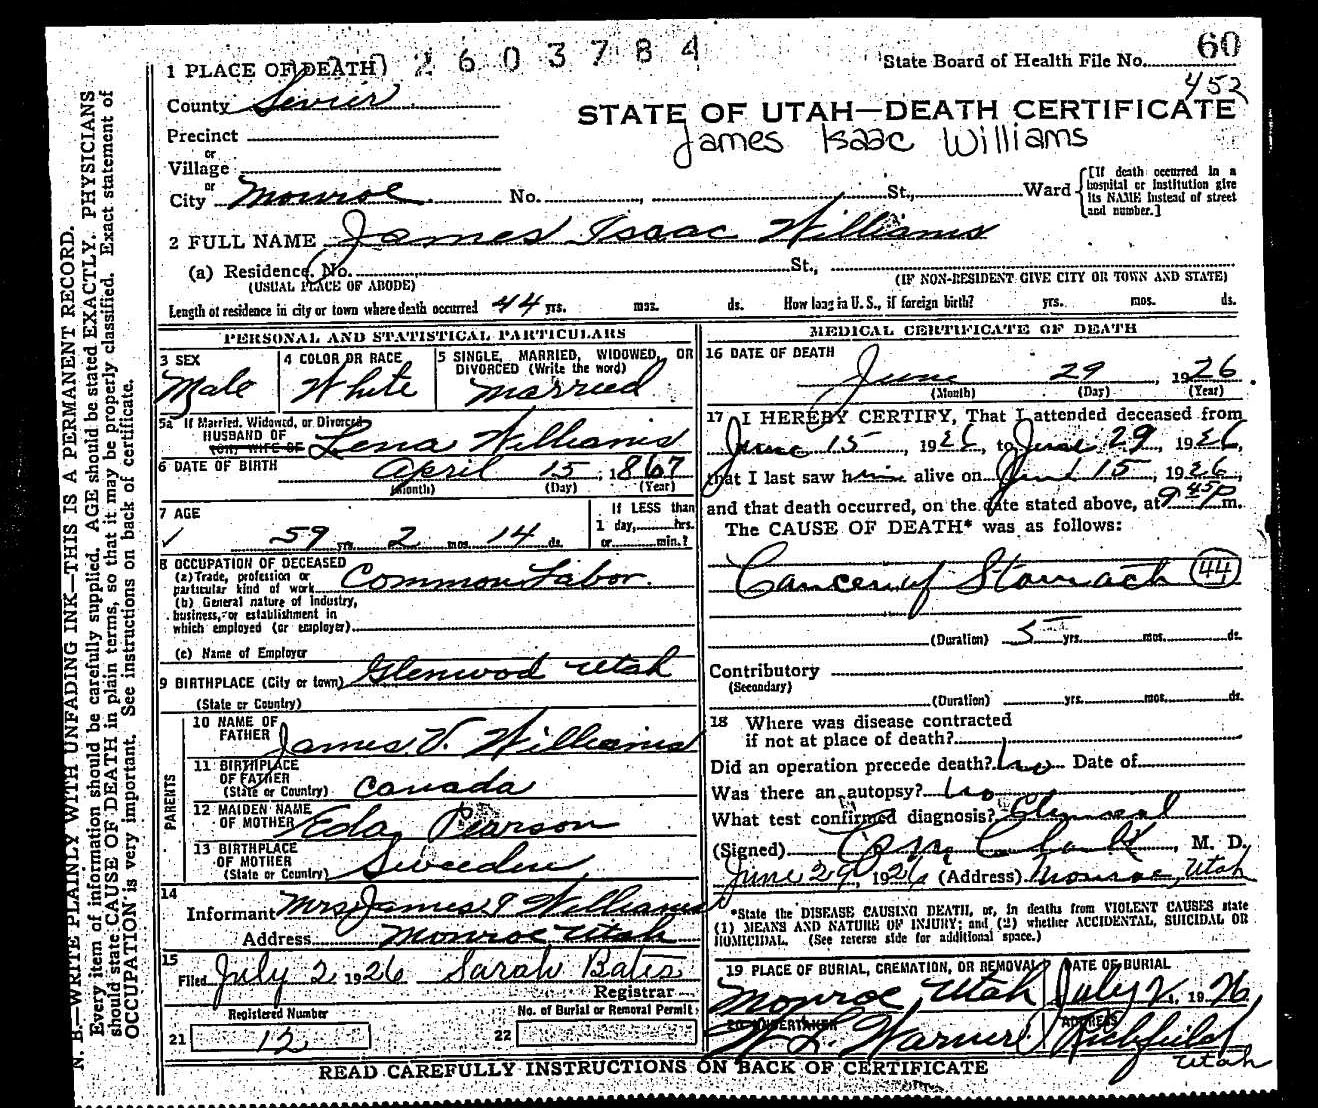 2603784
State Board of Health File No. 60
452
1 PLACE OF DEATH
County Sevier
STATE OF UTAH—DEATH CERTIFICATE
James Isaac Williams
Precinct
or
Village
or
City Monroe No. , St., Ward
[If death occurred in a hospital or institution give its NAME instead of street and number.]
2 FULL NAME James Isaac Williams
(a) Residence. No. St.,
(USUAL PLACE OF ABODE) (IF NON-RESIDENT GIVE CITY OR TOWN AND STATE)
Length of residence in city or town where death occurred 44 yrs. mos. ds. How long in U. S., if foreign birth? yrs. mos. ds.
PERSONAL AND STATISTICAL PARTICULARS
3 SEX
Male
4 COLOR OR RACE
White
5 SINGLE, MARRIED, WIDOWED, OR
DIVORCED (Write the word)
Married
5a If Married, Widowed, or Divorced
HUSBAND OF
(OR) WIFE OF Lena Williams
6 DATE OF BIRTH April 15, 1867
(Month) (Day) (Year)
7 AGE
✓ 59 yrs. 2 mos. 14 ds.
If LESS than
1 day, hrs.
or min.?
8 OCCUPATION OF DECEASED
(a) Trade, profession or
particular kind of work Common Labor.
(b) General nature of industry,
business, or establishment in
which employed (or employer)
(c) Name of Employer
9 BIRTHPLACE (City or town) Glenwood Utah
(State or Country)
PARENTS
10 NAME OF
FATHER James V. Williams
11 BIRTHPLACE
OF FATHER
(State or Country) Canada
12 MAIDEN NAME
OF MOTHER Eda Pearson
13 BIRTHPLACE
OF MOTHER
(State or Country) Sweeden
14
Informant Mrs James I Williams
Address Monroe Utah
15
Filed July 2 1926 Sarah Bates
Registrar
Registered Number
21 12
No. of Burial or Removal Permit
22
MEDICAL CERTIFICATE OF DEATH
16 DATE OF DEATH
June 29, 1926.
(Month) (Day) (Year)
17 I HEREBY CERTIFY, That I attended deceased from
June 15, 1926, to June 29, 1926,
that I last saw him alive on June 15, 1926,
and that death occurred, on the date stated above, at 9 45 P m.
The CAUSE OF DEATH* was as follows:
Cancer of Stomach 44
(Duration) 5 yrs. mos. ds.
Contributory
(Secondary)
(Duration) yrs. mos. ds.
18 Where was disease contracted
if not at place of death?
Did an operation precede death? no Date of
Was there an autopsy? no
What test confirmed diagnosis? Clinical
(Signed) Clark, M. D.
June 29, 1926 (Address) Monroe, Utah
*State the DISEASE CAUSING DEATH, or, in deaths from VIOLENT CAUSES state
(1) MEANS AND NATURE OF INJURY; and (2) whether ACCIDENTAL, SUICIDAL OR
HOMICIDAL. (See reverse side for additional space.)
19 PLACE OF BURIAL, CREMATION, OR REMOVAL
Monroe, Utah
DATE OF BURIAL
July 2, 1926
20 UNDERTAKER
W L Warner
ADDRESS
Richfield
Utah
READ CAREFULLY INSTRUCTIONS ON BACK OF CERTIFICATE
N. B.—WRITE PLAINLY WITH UNFADING INK—THIS IS A PERMANENT RECORD.
Every item of information should be carefully supplied. AGE should be stated EXACTLY. PHYSICIANS
should state CAUSE OF DEATH in plain terms, so that it may be properly classified. Exact statement of
OCCUPATION is very important. See instructions on back of certificate.